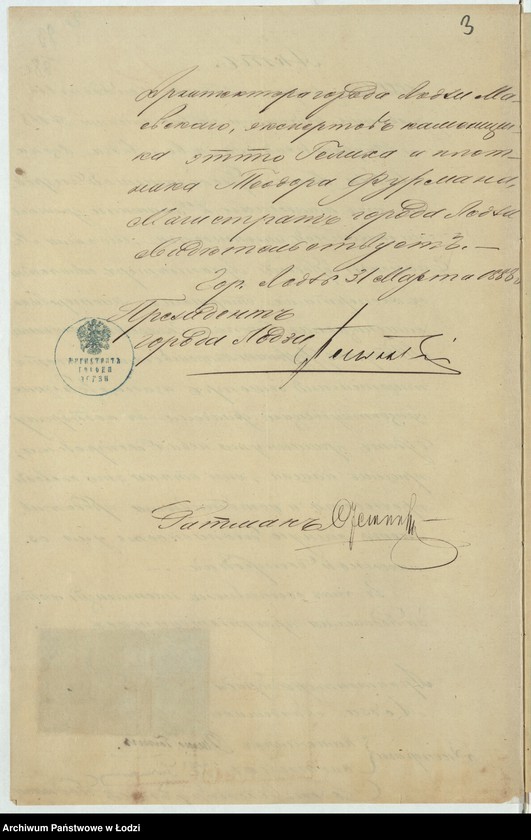 3
Архитектора города Лодзи Ма-
евскаго, экспертовъ каменщи-
ка Отто Гелиха и плот-
ника Теодора Фурмана,
Магистратъ города Лодзи
свидѣтельствуетъ.—
Гор. Лодзь 31 Марта 1888 г.
Президентъ
города Лодзи
МАГИСТРАТЪ
ГОРОДА
ЛОДЗИ
Archiwum Państwowe w Łodzi